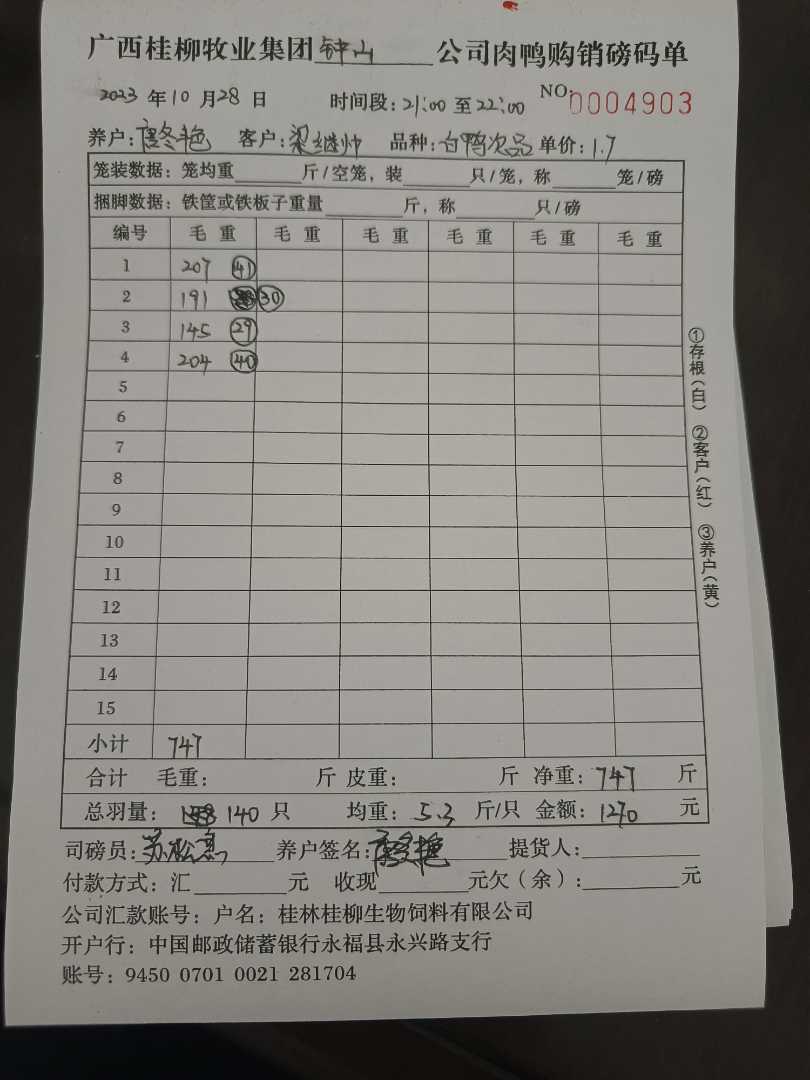 广西桂柳牧业集团钟山公司肉鸭购销磅码单
2023年10月28日 时间段:21:00至22:00 NO:0004903
养户:唐冬艳 客户:梁继帅 品种:白鸭次品 单价:1.7
笼装数据:笼均重____斤/空笼,装____只/笼,称____笼/磅
捆脚数据:铁筐或铁板子重量____斤,称____只/磅
编号 毛重 毛重 毛重 毛重 毛重 毛重
1 207 41
2 191 30
3 145 29
4 204 40
5
6
7
8
9
10
11
12
13
14
15
小计 747
合计 毛重: 斤 皮重: 斤 净重:747 斤
总羽量:140只 均重:5.3斤/只 金额:1270元
司磅员:苏松 养户签名:唐冬艳 提货人:
付款方式:汇____元 收现____元欠(余):____元
公司汇款账号:户名:桂林桂柳生物饲料有限公司
开户行:中国邮政储蓄银行永福县永兴路支行
账号:9450 0701 0021 281704
①存根(白) ②客户(红) ③养户(黄)